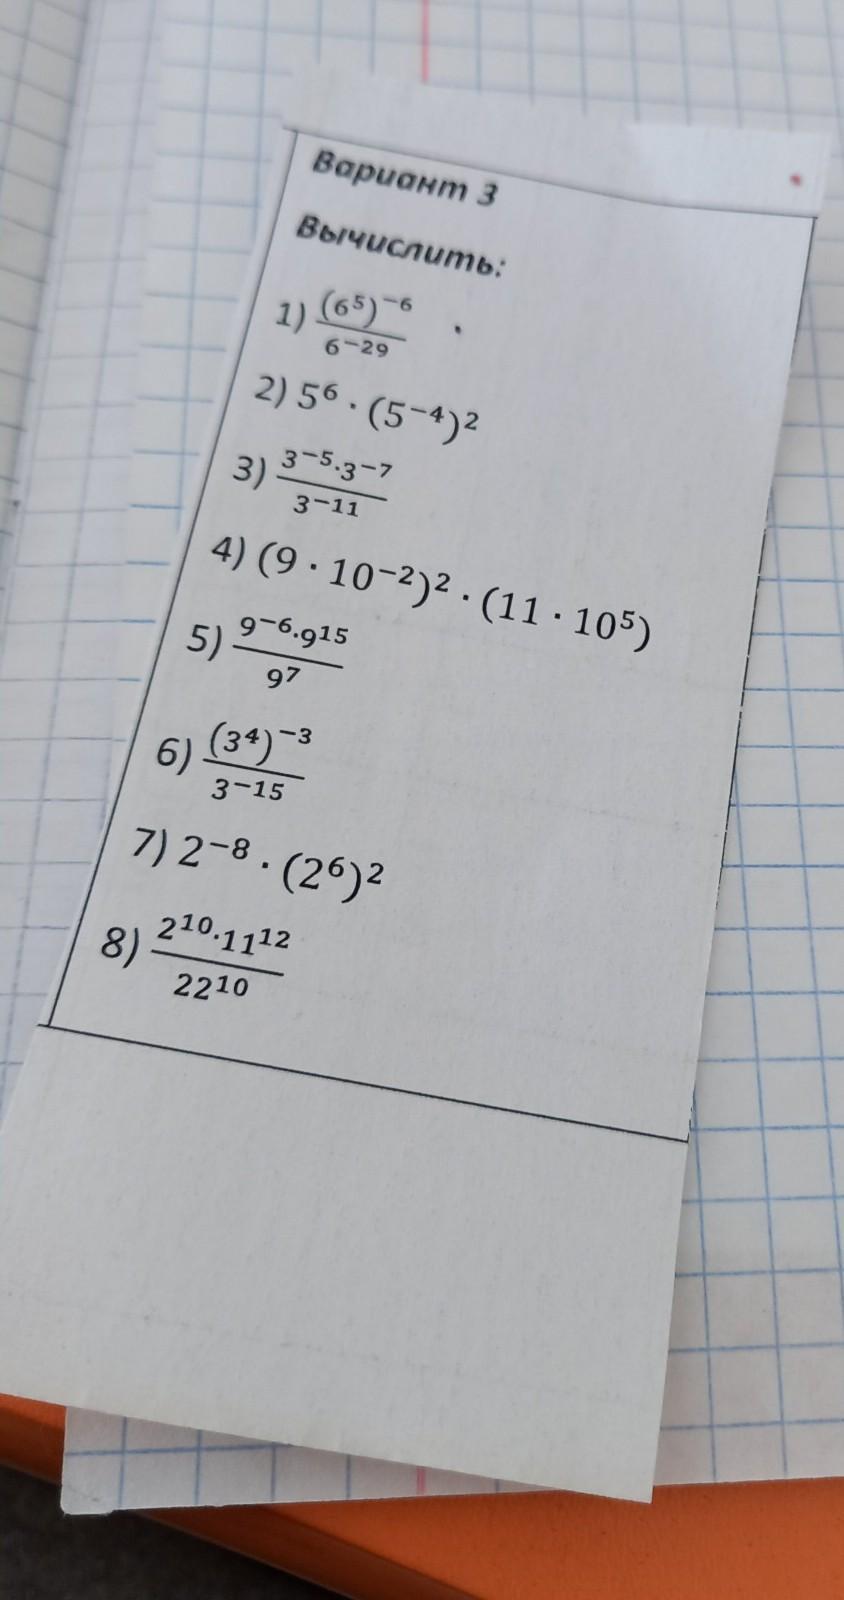 Вариант 3
Вычислить:
1) (6⁵)⁻⁶ / 6⁻²⁹
2) 5⁶ · (5⁻⁴)²
3) 3⁻⁵·3⁻⁷ / 3⁻¹¹
4) (9 · 10⁻²)² · (11 · 10⁵)
5) 9⁻⁶·9¹⁵ / 9⁷
6) (3⁴)⁻³ / 3⁻¹⁵
7) 2⁻⁸ · (2⁶)²
8) 2¹⁰·11¹² / 22¹⁰